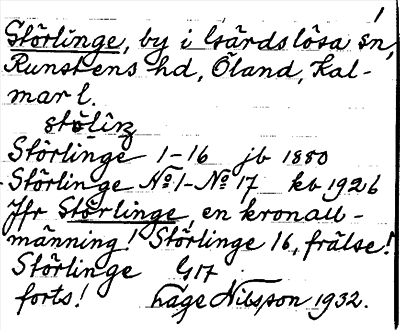 1
Störlinge, by i Gärdslösa sn,
Runstens hd, Öland, Kal-
mar l.
störliŋ
Störlinge 1-16 jb 1880
Störlinge No 1-No 17 kb 1926
Jfr Störlinge, en kronoall-
männing! Störlinge 16, frälse!
Störlinge G17
forts! Låge Nilsson 1932.